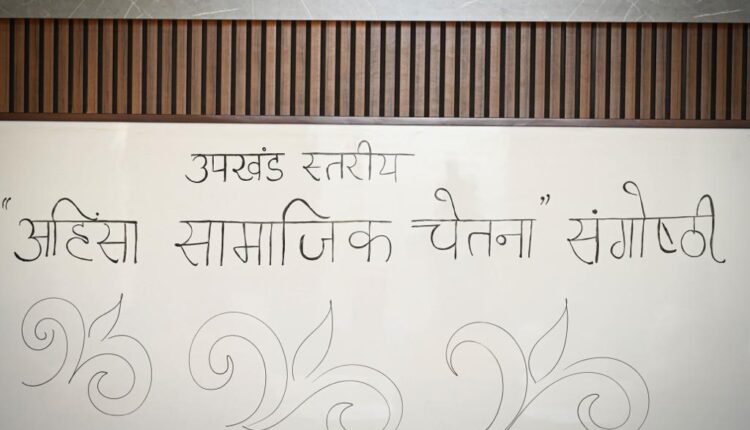 उपखंड स्तरीय
"अहिंसा सामाजिक चेतना" संगोष्ठी